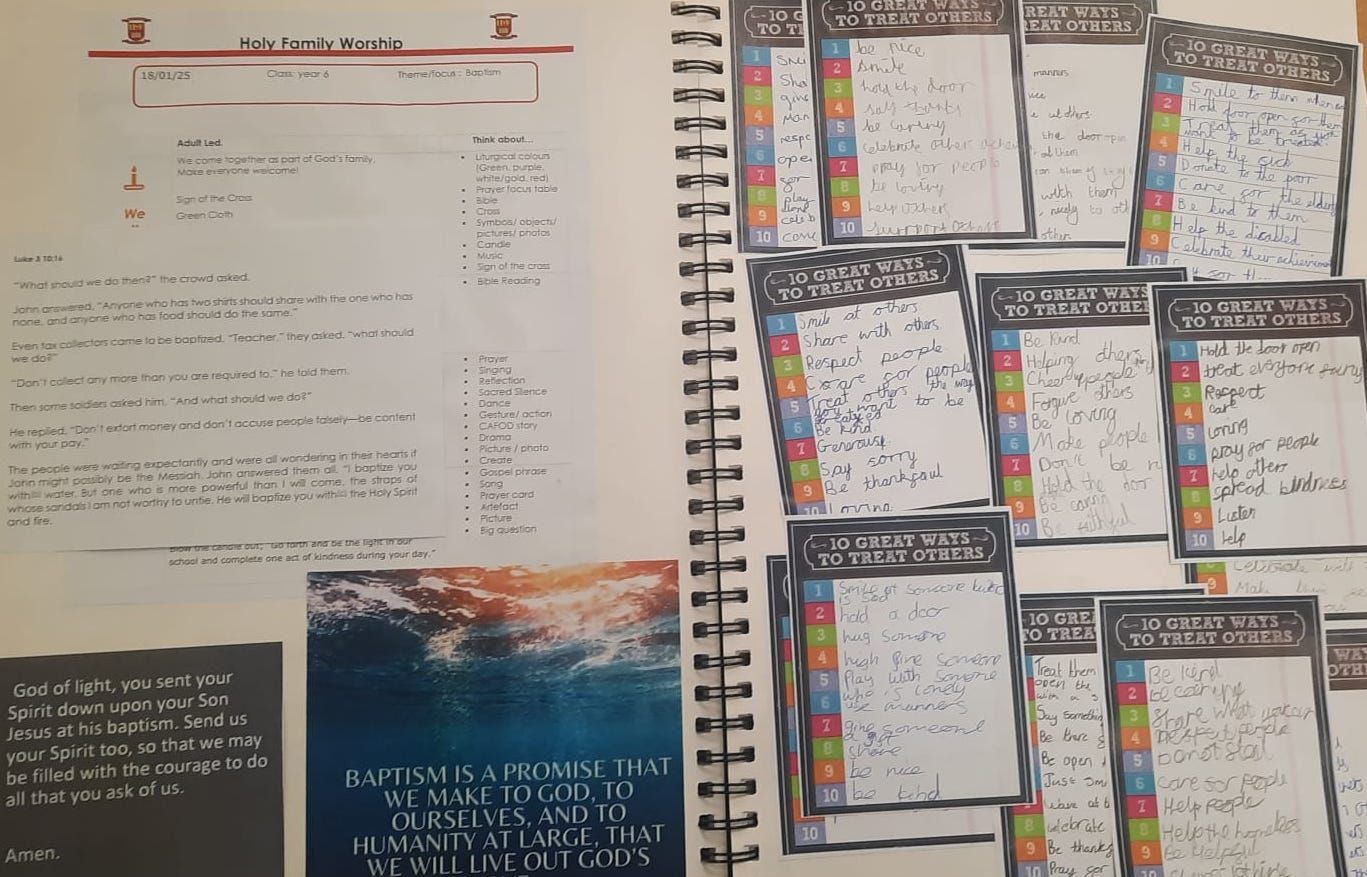 Holy Family Worship
18/01/25 Class: year 6 Theme/focus : Baptism
Adult Led.
We come together as part of God's family.
Make everyone welcome!
Sign of the Cross
We
Green Cloth
Think about...
Liturgical colours
(Green, purple,
white/gold, red)
Prayer focus table
Bible
Cross
Symbols/ objects/
pictures/ photos
Candle
Music
Sign of the cross
Bible Reading
Prayer
Singing
Reflection
Sacred Silence
Dance
Gesture/ action
CAFOD story
Drama
Picture / photo
Create
Gospel phrase
Song
Prayer card
Artefact
Picture
Big question
Luke 3 10:16
"What should we do then?" the crowd asked.
John answered, "Anyone who has two shirts should share with the one who has
none, and anyone who has food should do the same."
Even tax collectors came to be baptized. "Teacher," they asked, "what should
we do?"
"Don't collect any more than you are required to," he told them.
Then some soldiers asked him, "And what should we do?"
He replied, "Don't extort money and don't accuse people falsely—be content
with your pay."
The people were waiting expectantly and were all wondering in their hearts if
John might possibly be the Messiah. John answered them all, "I baptize you
with water. But one who is more powerful than I will come, the straps of
whose sandals I am not worthy to untie. He will baptize you with the Holy Spirit
and fire.
Blow the candle out, "Go forth and be the light in our
school and complete one act of kindness during your day."
God of light, you sent your
Spirit down upon your Son
Jesus at his baptism. Send us
your Spirit too, so that we may
be filled with the courage to do
all that you ask of us.
Amen.
BAPTISM IS A PROMISE THAT
WE MAKE TO GOD, TO
OURSELVES, AND TO
HUMANITY AT LARGE, THAT
WE WILL LIVE OUT GOD'S
10 GREAT WAYS
TO TREAT OTHERS
1 be nice
2 smile
3 hold the door
4 say thanks
5 be caring
6 celebrate other
7 pray for people
8 be loving
9 help others
10 support others
manners
the door open
with them
10 GREAT WAYS
TO TREAT OTHERS
1 Smile to them when
2 Hold door open for them
3 Treat them as you
want to be treated.
4 Help the sick
5 Donate to the poor
6 Care for the elderly
7 Be kind to them
8 Help the disabled
9 Celebrate their achievement
10 GREAT WAYS
TO TREAT OTHERS
1 Smile at others
2 Share with others
3 Respect people
4 Care for people
5 Treat others the way
you want to be
treated
6 Be kind
7 Generous
8 Say sorry
9 Be thankful
10 Loving
10 GREAT WAYS
TO TREAT OTHERS
1 Be kind
2 Helping others
3 Cheer up people
4 Forgive others
5 Be loving
6 Make people
7 Don't be
8 Hold the door
9 Be caring
10 Be faithful
10 GREAT WAYS
TO TREAT OTHERS
1 Hold the door open
2 treat everyone
3 Respect
4 care
5 loving
6 pray for people
7 help others
8 spread kindness
9 Listen
10 help
10 GREAT WAYS
TO TREAT OTHERS
1 Smile at someone
is sad
2 hold a door
3 hug someone
4 high five someone
5 Play with someone
who is lonely
6 use manners
7 give someone
a gift
8 share
9 be nice
10 be kind
Treat them
open the
with a s
Say something
Be there
Be open
celebrate
9 Be thank
10 Pray for
10 GREAT WAYS
TO TREAT OTHERS
1 Be kind
2 Be caring
3 Share what you can
4 Respect people
5 Do not steal
6 care for people
7 Help people
8 Help the homeless
9 Be helpful